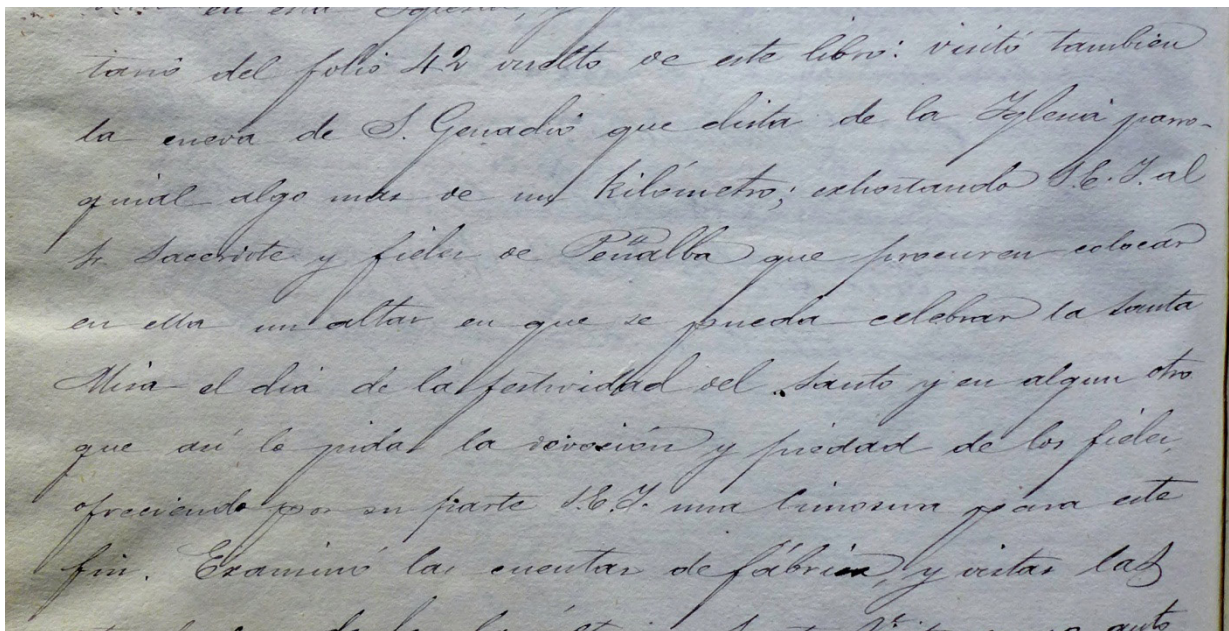 en esta Iglesia, y
tario del folio 42 vuelto de este libro: visitó tambien
la cueva de S. Genadio que dista de la Iglesia parro-
quial algo mas de un kilómetro; exhortando S. E. I. al
Sr. Sacerdote y fieles de Peñalba que procuren colocar
en ella un altar en que se pueda celebrar la Santa
Misa el dia de la festividad del Santo y en algun otro
que así lo pida la devoción y piedad de los fieles,
ofreciendo por su parte S. E. I. una limosna para este
fin. Examinó las cuentas de fábrica, y vistas las